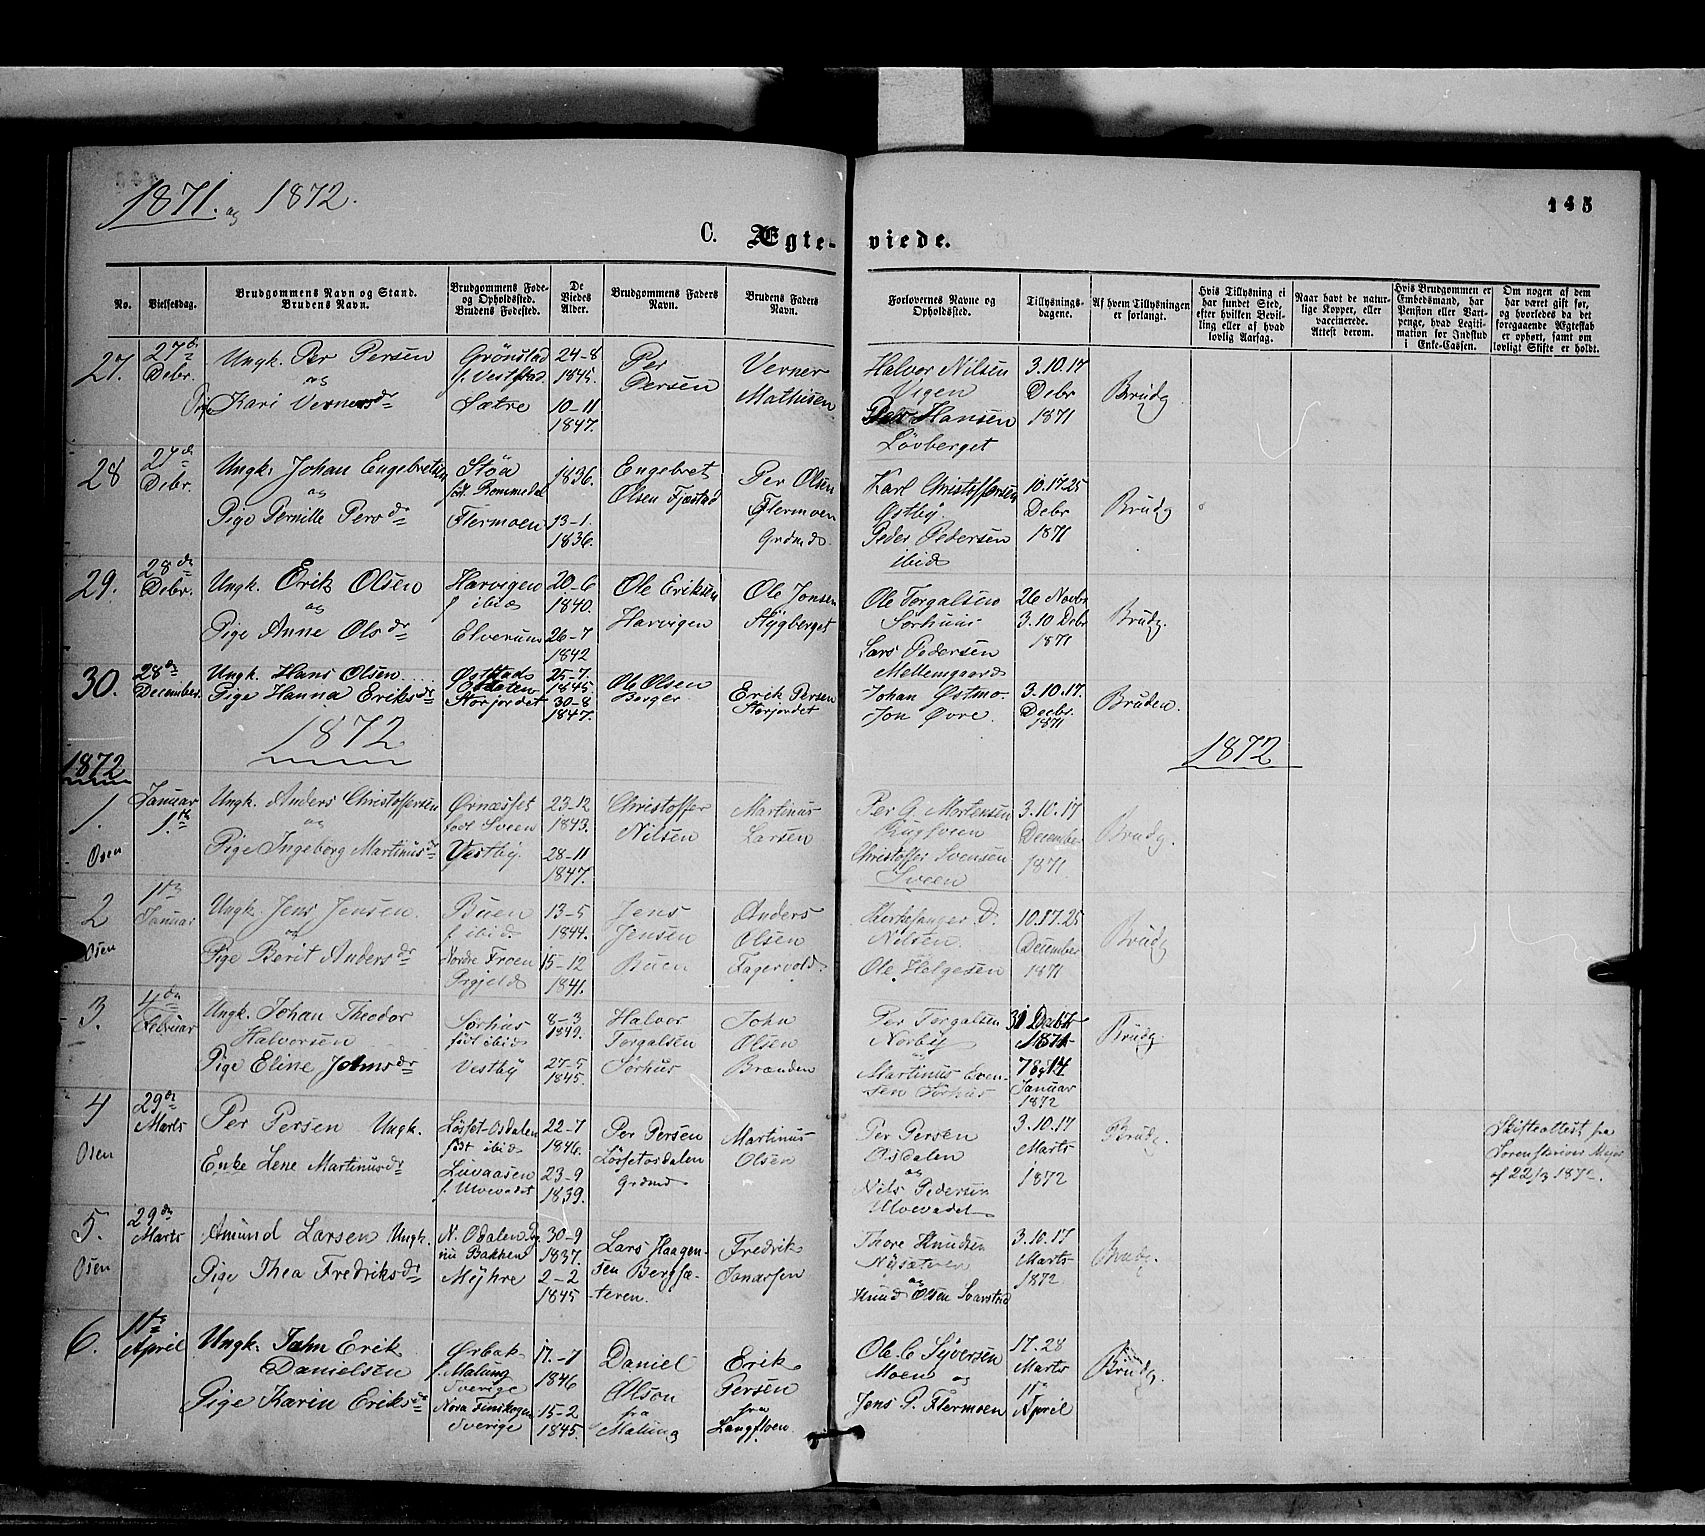 1871. og 1872.
145
C. Ægte-viede.
No.
Vielsesdag.
Brudgommens Navn og Stand.
Brudens Navn.
Brudgommens Føde-
og Opholdssted.
Brudens Fødested.
De
Viedes
Alder.
Brudgommens Faders
Navn.
Brudens Faders
Navn.
Forlovernes Navne og
Opholdssted.
Tillysnings-
dagene.
Af hvem Tillysningen
er forlangt.
Hvis Tillysning ei
har fundet Sted,
efter hvilken Bevil-
ling eller af hvad
lovlig Aarsag.
Naar havt de natur-
lige Kopper, eller
vaccinerede.
Attest derom.
Hvis Brudgommen er
Embedsmand, har
Pension eller Vart-
penge, hvad Legiti-
mation for Indskud
i Enke-Cassen.
Om nogen af dem
har været gift før,
og hvorledes da det
foregaaende Ægteskab
er ophørt, samt om
lovligt Skifte er holdt.
27.
27de
Debr.
Ungk. Per Persen
og
Kari Vernersdr
Grönstad
f. Vestgstad
Sætre
24-8
1845.
10-11
1847.
Per
Persen
Verner
Mathisen
Halvor Nilsen
Vigen
Hansen
Lövberget
3.10.17
Debr
1871
Brudg
28
27de
Debr.
Ungk. Johan Engebretsen
og
Pige Pernille Persdr
Støa
föd. Rommedal
Flermoen
1836.
13-1
1836.
Engebret
Olsen Fjæstad
Per Olsen
Flermoen
Grdmd.
Karl Christoffersen
Østby.
Peder Pedersen
ibid
10.17.25
Debr
1871
Brudg
29.
28de
Debr.
Ungk. Erik Olsen
og
Pige Anne Olsdr
Harvigen
f ibid
Elverum
20-6
1840.
26-7
1842
Ole Eriksen
Harvigen
Ole Jonsen
Stygberget
Ole Torgalsen
Sørhuus
Lars Pedersen
Mellemgaard
26 Novbr
3.10 Debr
1871
Brudg.
30.
28de
December.
Ungk. Hans Olsen
Pige Hanna Eriksdr
Storjordet
25-7
1845.
30-8
1847.
Ole Olsen
Berger
Erik Persen
Storjordet
Johan Østmo
Jon Øvre.
3.10.17.
Decbr.
1871
Bruden.
1872
1872
1872
1.
Osen
Januar
1ste
Ungk. Anders Christoffersen
og
Pige Ingeborg Martinusdr
Ørnæsset
födt Sveen
Vestby.
23-12
1843.
28-11
1847.
Christoffer
Nilsen
Martinus
Larsen
Per G. Mortensen
Rugsveen
Christoffer Svensen
Sveen
3.10.17
December
1871
Brudg.
2
Osen
1ste
Januar
Ungk. Jens Jensen.
og
Pige Berit Andersdr
Buen
f. ibid
13-5
1844.
15-12
1841.
Jens
Jensen
Buen
Anders
Olsen
Fagervold
Kirkesanger D.
Nilsen.
Ole Helgesen
10.17.25
December
1871
Brudg
3.
4de
Februar
Ungk. Johan Theodor
Halvorsen
Pige Eline Johnsdr
Sørhus
födt ibid
Vestby
8-3
1849.
27-5
1845.
Halvor
Torgalsen
Sørhus
John
Olsen
Brænden
Per Torgalsen
Norby
Martinus Even-
sen Sørhus
31 Decbr
1871
7 og 14
Januar
1872
Brudg.
4
Osen
29de
Marts
Per Persen Ungk.
Enke Lene Martinusdr
Løsset-Osdalen
födt ibid
Luvaasen
f. Ulvevadet
22-7
1846.
23-9
1839.
Per Persen
Løssetosdalen
Grdmd
Martinus
Olsen
Per Persen
Osdalen
og
Nils Pedersen
Ulvevadet
3.10.17
Marts
1872
Brudg.
Skifteattest fra
Sorenskriver
af 22/3 1872.
5.
Osen
29de
Marts
Amund Larsen Ungk.
Pige Thea Fredriksdr
N. Odalen
nu Bakken
Myhre
30-9
1837.
2-2
1845
Lars Haagen-
sen Bergsæ-
teren.
Fredrik
Ivarsen
Thore Knudsen
Nysæteren
og
Knud Olsen
3.10.17
Marts
1872
Brudg.
6.
1ste
April
Ungk. Jahn Erik
Danielsen
Pige Karin Eriksdr
Ørbak
f. Malung
Sverige
Nora Finskogen
Sverige
17.-7
1846
15-2
1845.
Daniel
Olson
fra
Malung
Erik
Persen
fra
Langfloen
Ole C Syversen
Moen og
Jens P. Flermoen
17.28
Marts
1ste
April
Brudg.